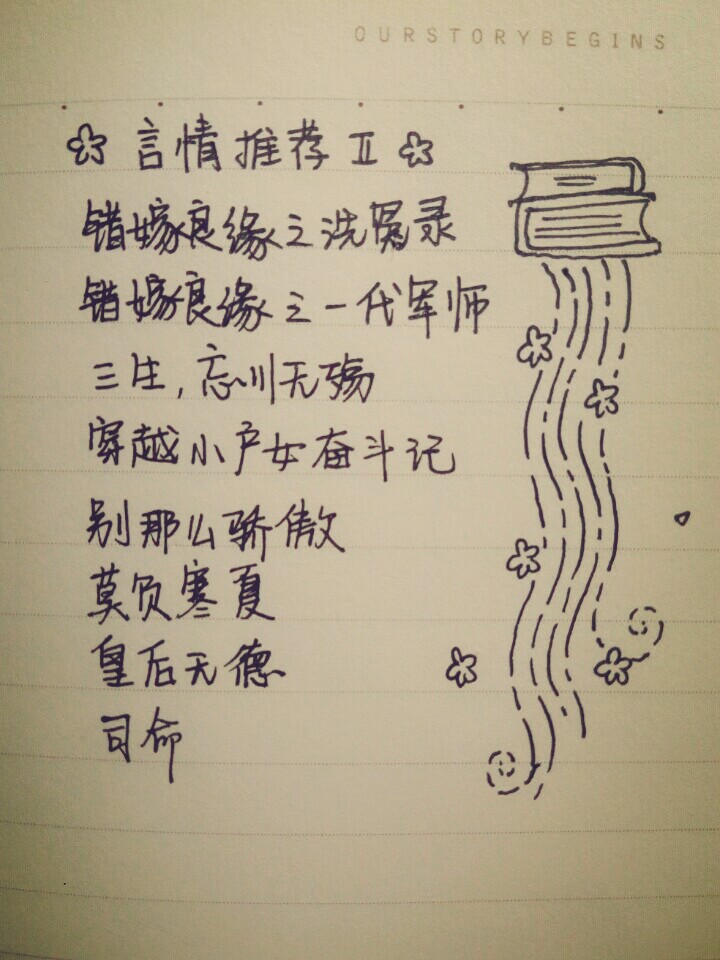 OURSTORYBEGINS
言情推荐 II
错嫁良缘之洗冤录
错嫁良缘之一代军师
三生，忘川无殇
穿越小户女奋斗记
别那么骄傲
莫负寒夏
皇后无德
司命